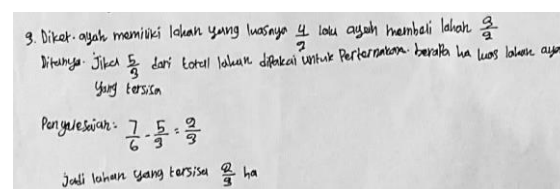 3. Diket. ayah memiliki lahan yang luasnya 4/2 lalu ayah membeli lahan 3/2
Ditanya. Jika 5/3 dari total lahan dipakai untuk Perternakan. berapa ha luas lahan aya
yang tersisa
Penyelesaian: 7/6 - 5/3 = 2/3
Jadi lahan yang tersisa 2/3 ha